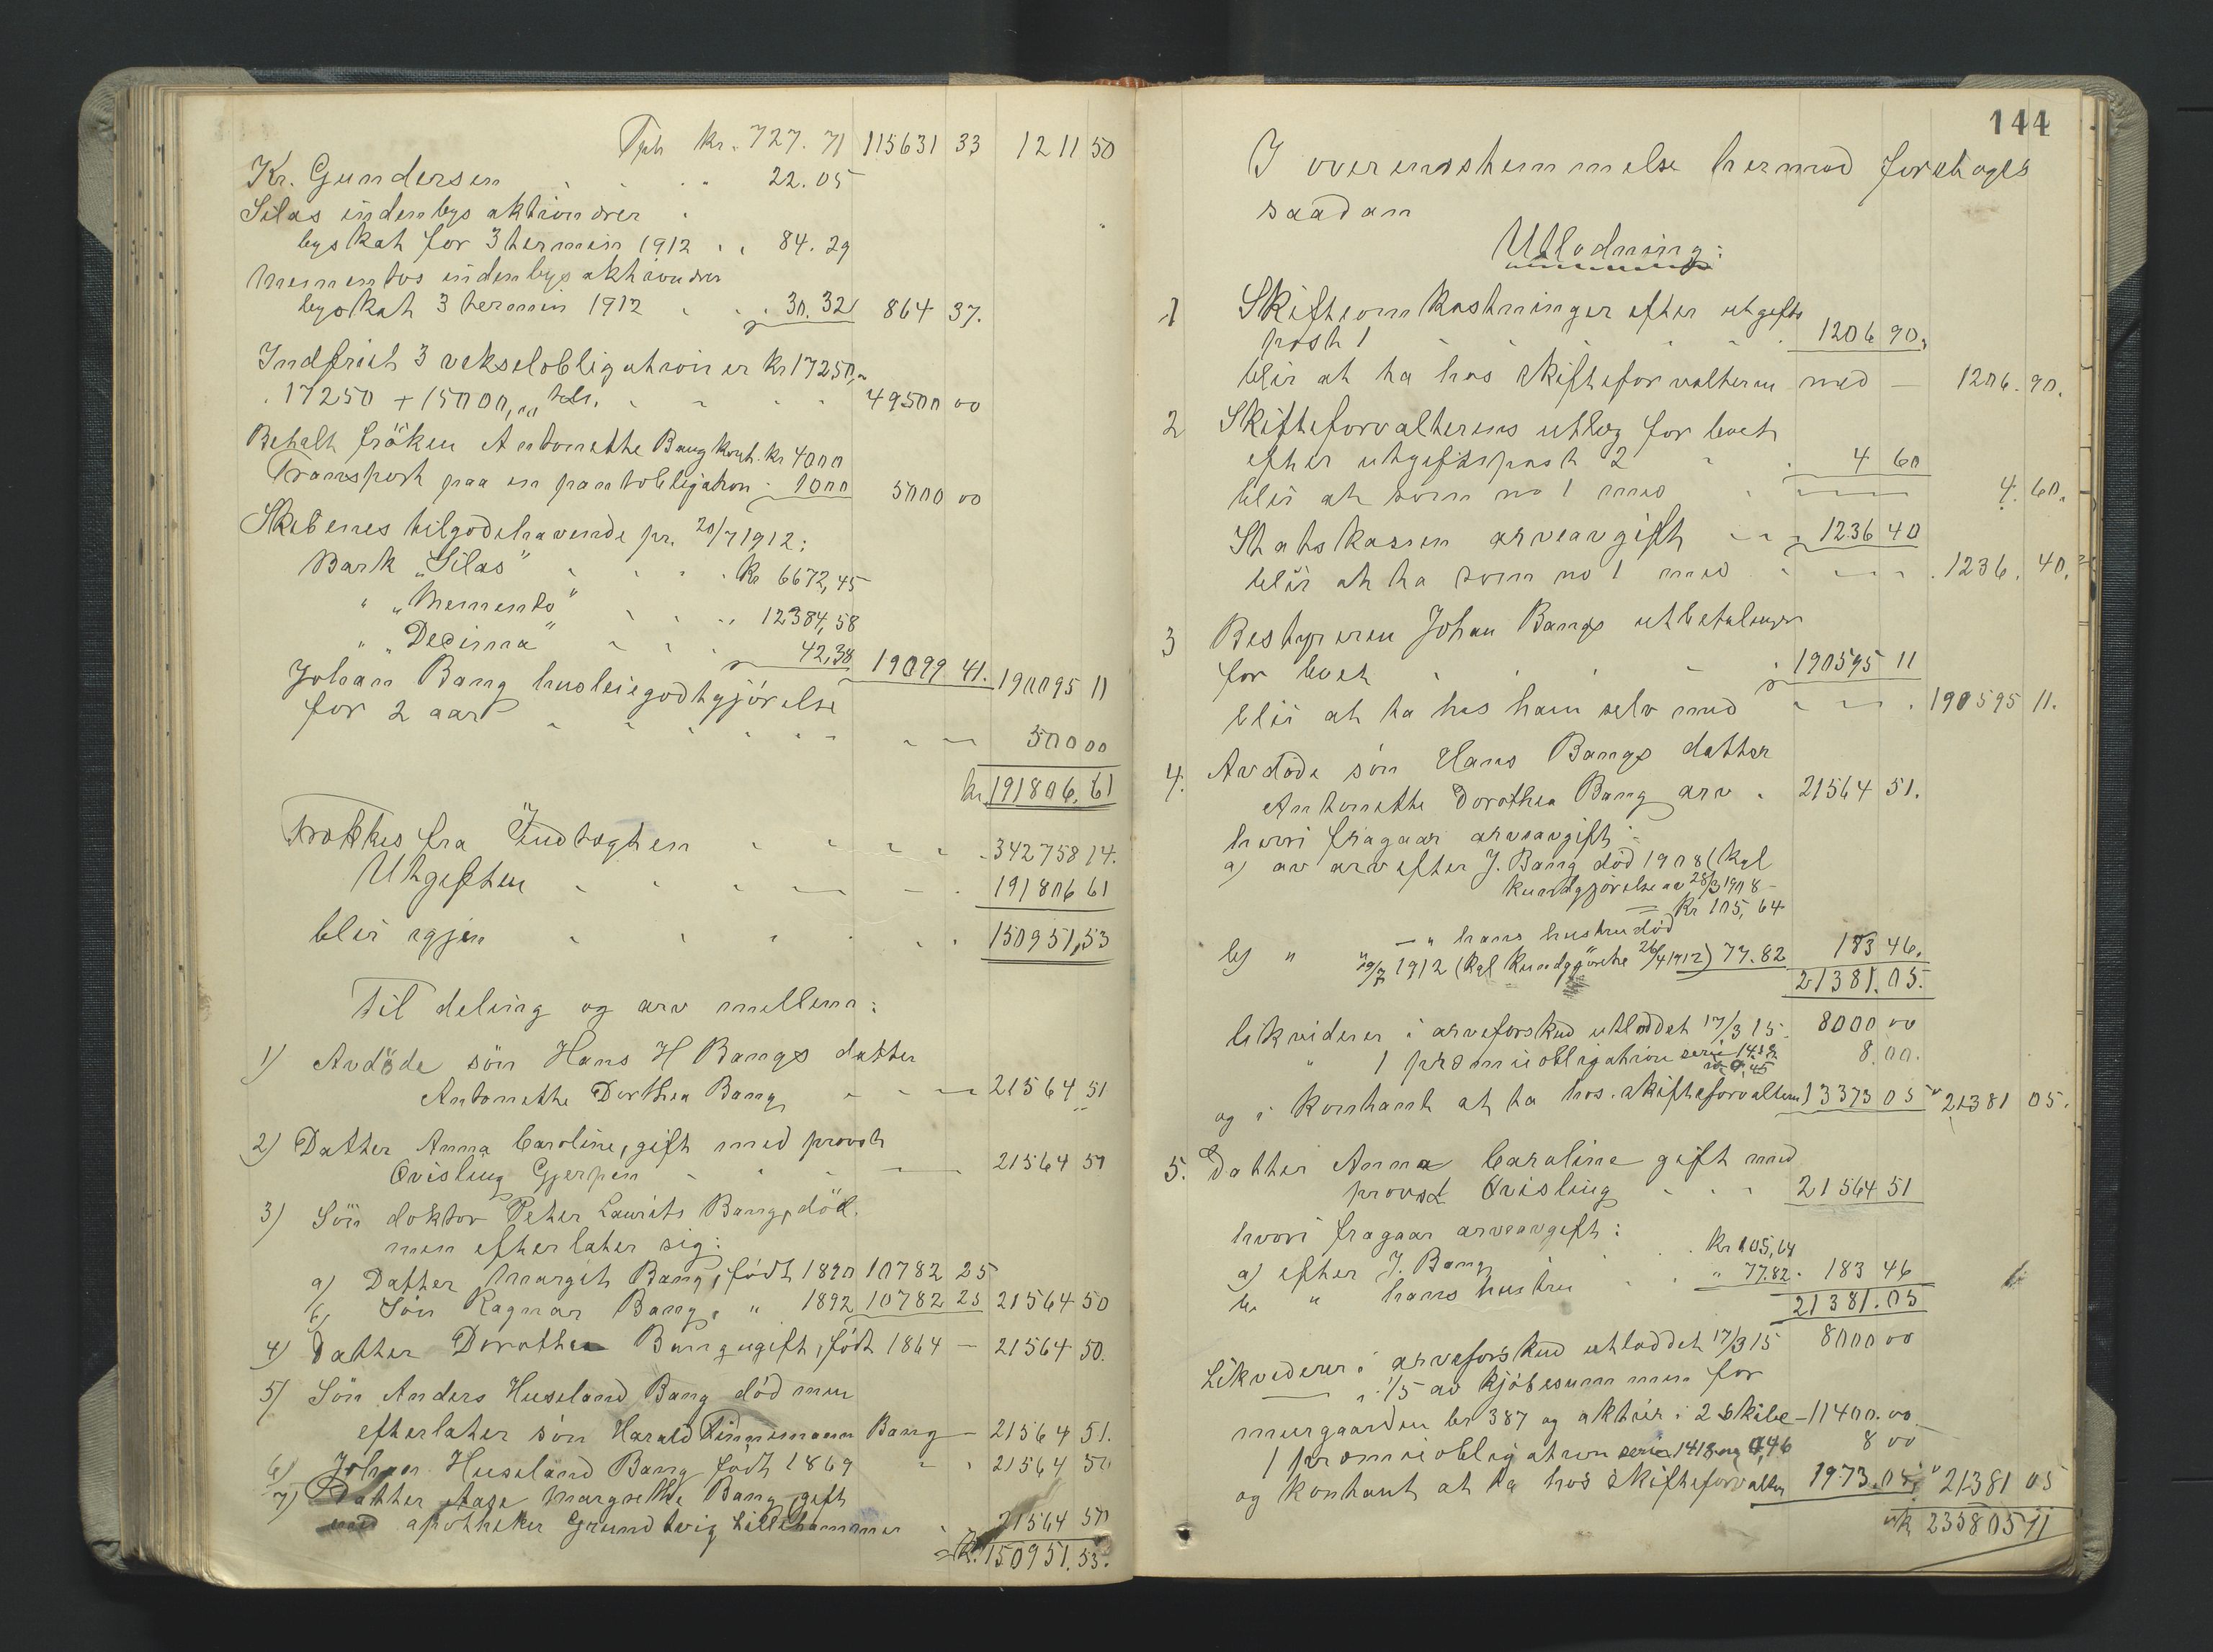 Tpt kr. 727.71 115631 33 1211 50
Kr. Gundersen 22.05
Silas indenbys aktionærer
byskat for 3 termin 1912 84.29
Mementos indenbys aktionærer
byskat 3 termin 1912 30.32 864 37.
Indfriet 3 vekselobligationer kr 17250,
17250 + 15000, 49500 00
Betalt fröken Antonette Bang kont. kr 4000
Transport paa en pantobligation 1000 5000 00
Skibenes tilgodehavende pr. 20/7 1912:
Bark „Silas" kr 6672,45
" „Memento" 12384,58
" „Decima" 42,38 19099 41. 190095 11
Johan Bang husleiegodtgjörelse
for 2 aar 500 00
kr. 191806.61
Trækkes fra Indtægten 342758 14.
Utgiften 191806 61
blir igjen 150951,53
Til deling og arv mellem:
1) Avdöde sön Hans H Bangs datter
Antonette Dorthea Bang 21564 51
2) Datter Anna Caroline, gift med provst
Qvisling Gjerpen 21564 50
3) Sön doktor Peter Laurits Bang, död.
men efterlater sig:
a) Datter Margit Bang, födt 1890 10782 25
b) Sön Ragnar Bang, " 1892 10782 25 21564 50
4) Datter Dorothea Bang ugift, födt 1864 — 21564 50.
5) Sön Anders Huseland Bang död men
efterlater sön Harald Tinnemann Bang — 21564 51.
6) Johan Huseland Bang födt 1869 21564 50
7) Datter Aase Margrethe Bang, gift
med apotheker Grundtvig Lillehammer 21564 50
kr. 150951.53.
144
I overensstemmelse hermed foretages
saadan
Utlodning:
1 Skifteomkostninger efter utgifts
post 1 1206 90,
blir at ta hos skifteforvalteren med — 1206.90.
2 Skifteforvalterens utlæg for boet
efter utgiftspost 2 4 60
blir at som no 1 med 4.60.
Statskassen arveavgift 1236 40
blir at ta som no 1 med 1236.40.
3 Bestyreren Johan Bangs utbetalinger
for boet 190595 11
blir at ta hos ham selv med 190595 11.
4. Avdöde sön Hans Bangs datter
Antonette Dorothea Bang arv 21564 51.
hvori fragaar arveavgift:
a) av arv efter J. Bang död 1908 (kgl
kundgjörelse av 28/3 1908 –
– kr 105,64
– " hans hustru död
b) " " 19/7 1912 (kgl kundgjörelse 26/4 1912) 77.82 183 46.
21381.05.
likviderer i arveforskud utloddet 17/3 15. 8000 00
" 1 præmieobligation serie 1438 no 45 8.00.
og i kontant at ta hos skifteforvalteren 13373 05 " 21381 05.
5. Datter Anna Caroline gift med
provst Qvisling 21564 51
hvori fragaar arveavgift:
a) efter J. Bang kr 105,64
b. " hans hustru " 77.82. 183 46
21381.05
Likviderer i arveforskud utloddet 17/3 15 8000 00
— " 1/5 av kjöbesummen for
murgaarden br 387 og aktier i 2 skibe — 11400.00
1 præmieobligation serie 1418 no 46 8 00
og kontant at ta hos skifteforvalteren 1973.05 " 21381 05
kr 235805 11